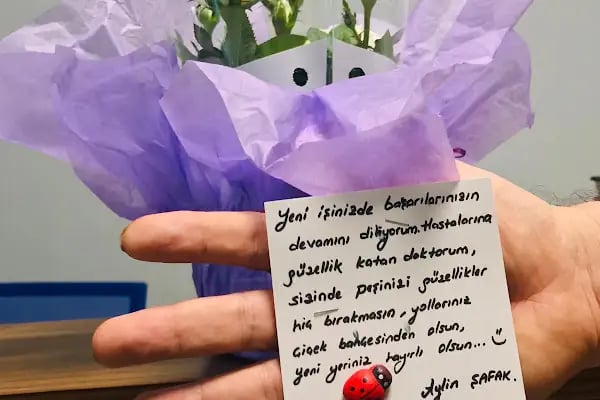 Yeni işinizde başarılarınızın
devamını diliyorum. Hastalarına
güzellik katan doktorum,
sizinde peşinizi güzellikler
hiç bırakmasın, yollarınız
çiçek bahçesinden olsun,
yeni yeriniz hayırlı olsun... :)
Aylin ŞAFAK.